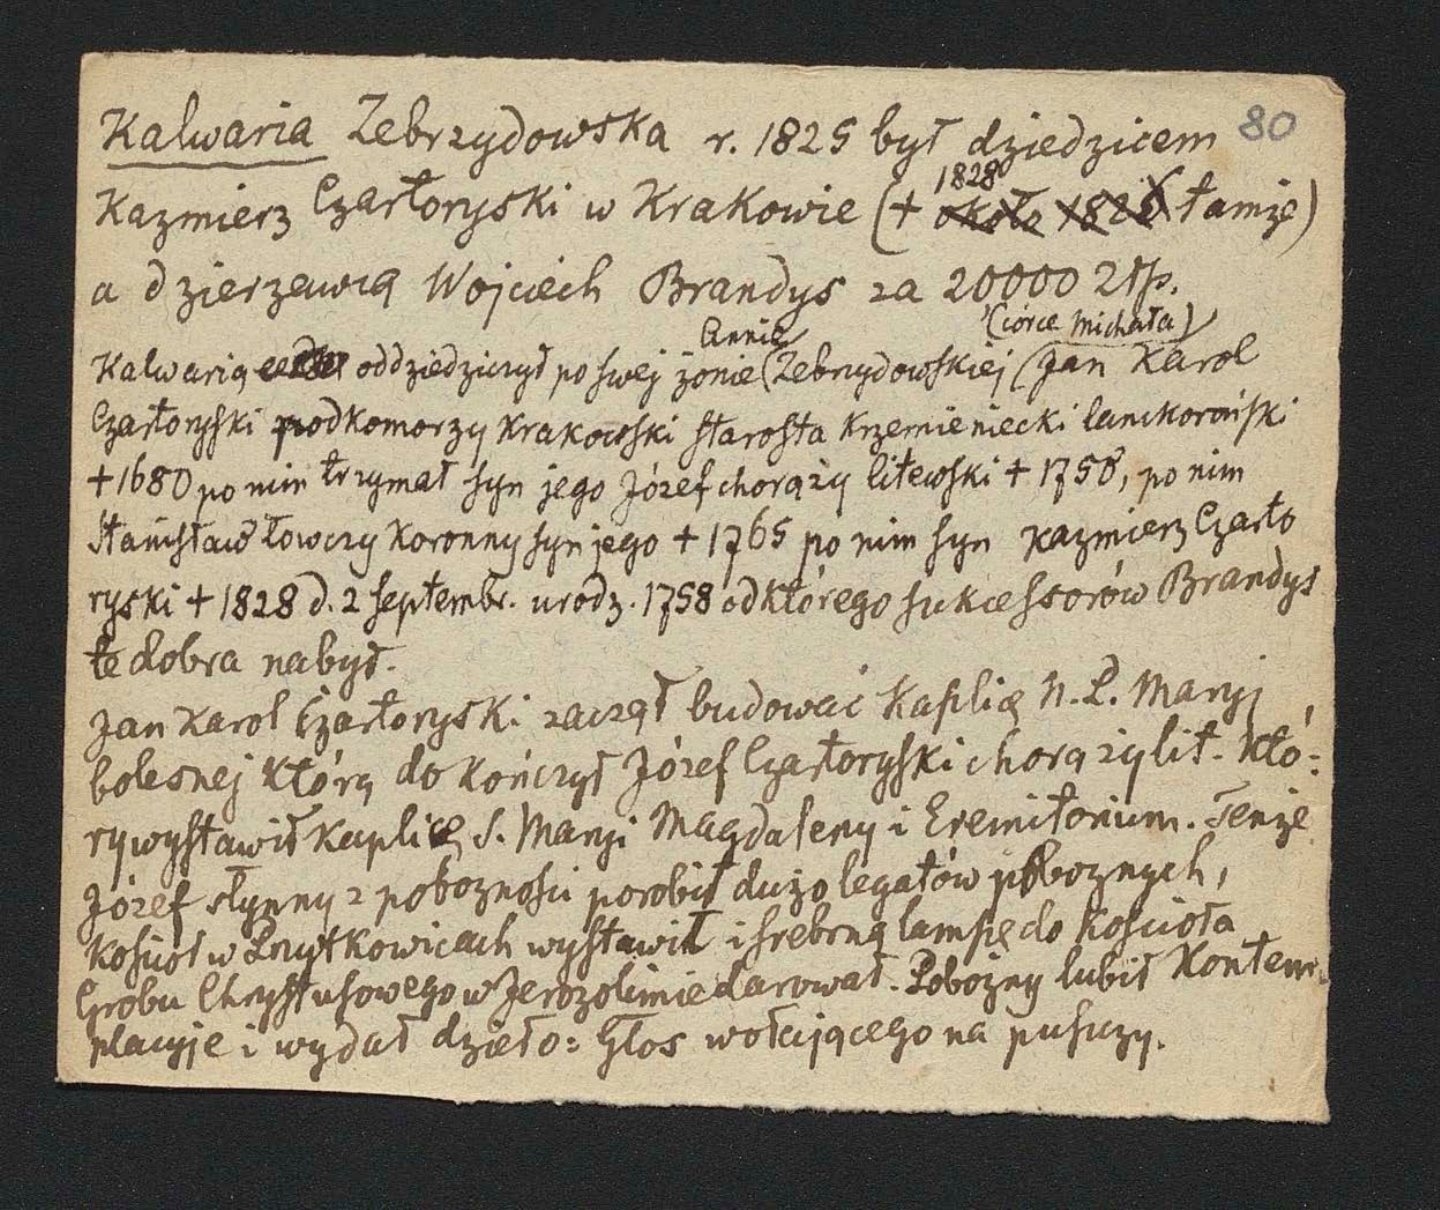 Kalwaria Zebrzydowska r. 1825 był dziedzicem 80
Kazmierz Czartoryski w Krakowie (+ 1828 około 1826 tamże)
a dzierzawcą Wojciech Brandys za 20000 Złp.
Annie (córce Michała)
Kalwarią oddziedziczył po swej żonie (Zebrzydowskiej (Jan Karol
Czartoryski podkomorzy Krakowski starosta Krzemieniecki lanckoroński
+ 1680 po nim trzymał syn jego Józef chorąży litewski + 1750, po nim
Stanisław łowczy Koronny syn jego + 1765 po nim syn Kazmierz Czarto
ryski + 1828 d. 2 septembr. urodz. 1758 od którego sukcessorów Brandys
te dobra nabył.
Jan Karol Czartoryski zaczął budować Kaplię N. P. Maryi
bolesnej którą do kończył Józef Czartoryski chorąży lit. któ=
ry wystawił Kaplicę S. Maryi Magdaleny i Eremitorium. Tenże
Józef słynny z pobozności porobił dużo legatów pobożnych,
Kościoł w Przytkowicach wystawił i srebrną lampę do Kościoła
Grobu Chrystusowego w Jerozolimie darował. Pobożny lubił Kontem=
placyje i wydał dzieło: Głos wołającego na pusczy.